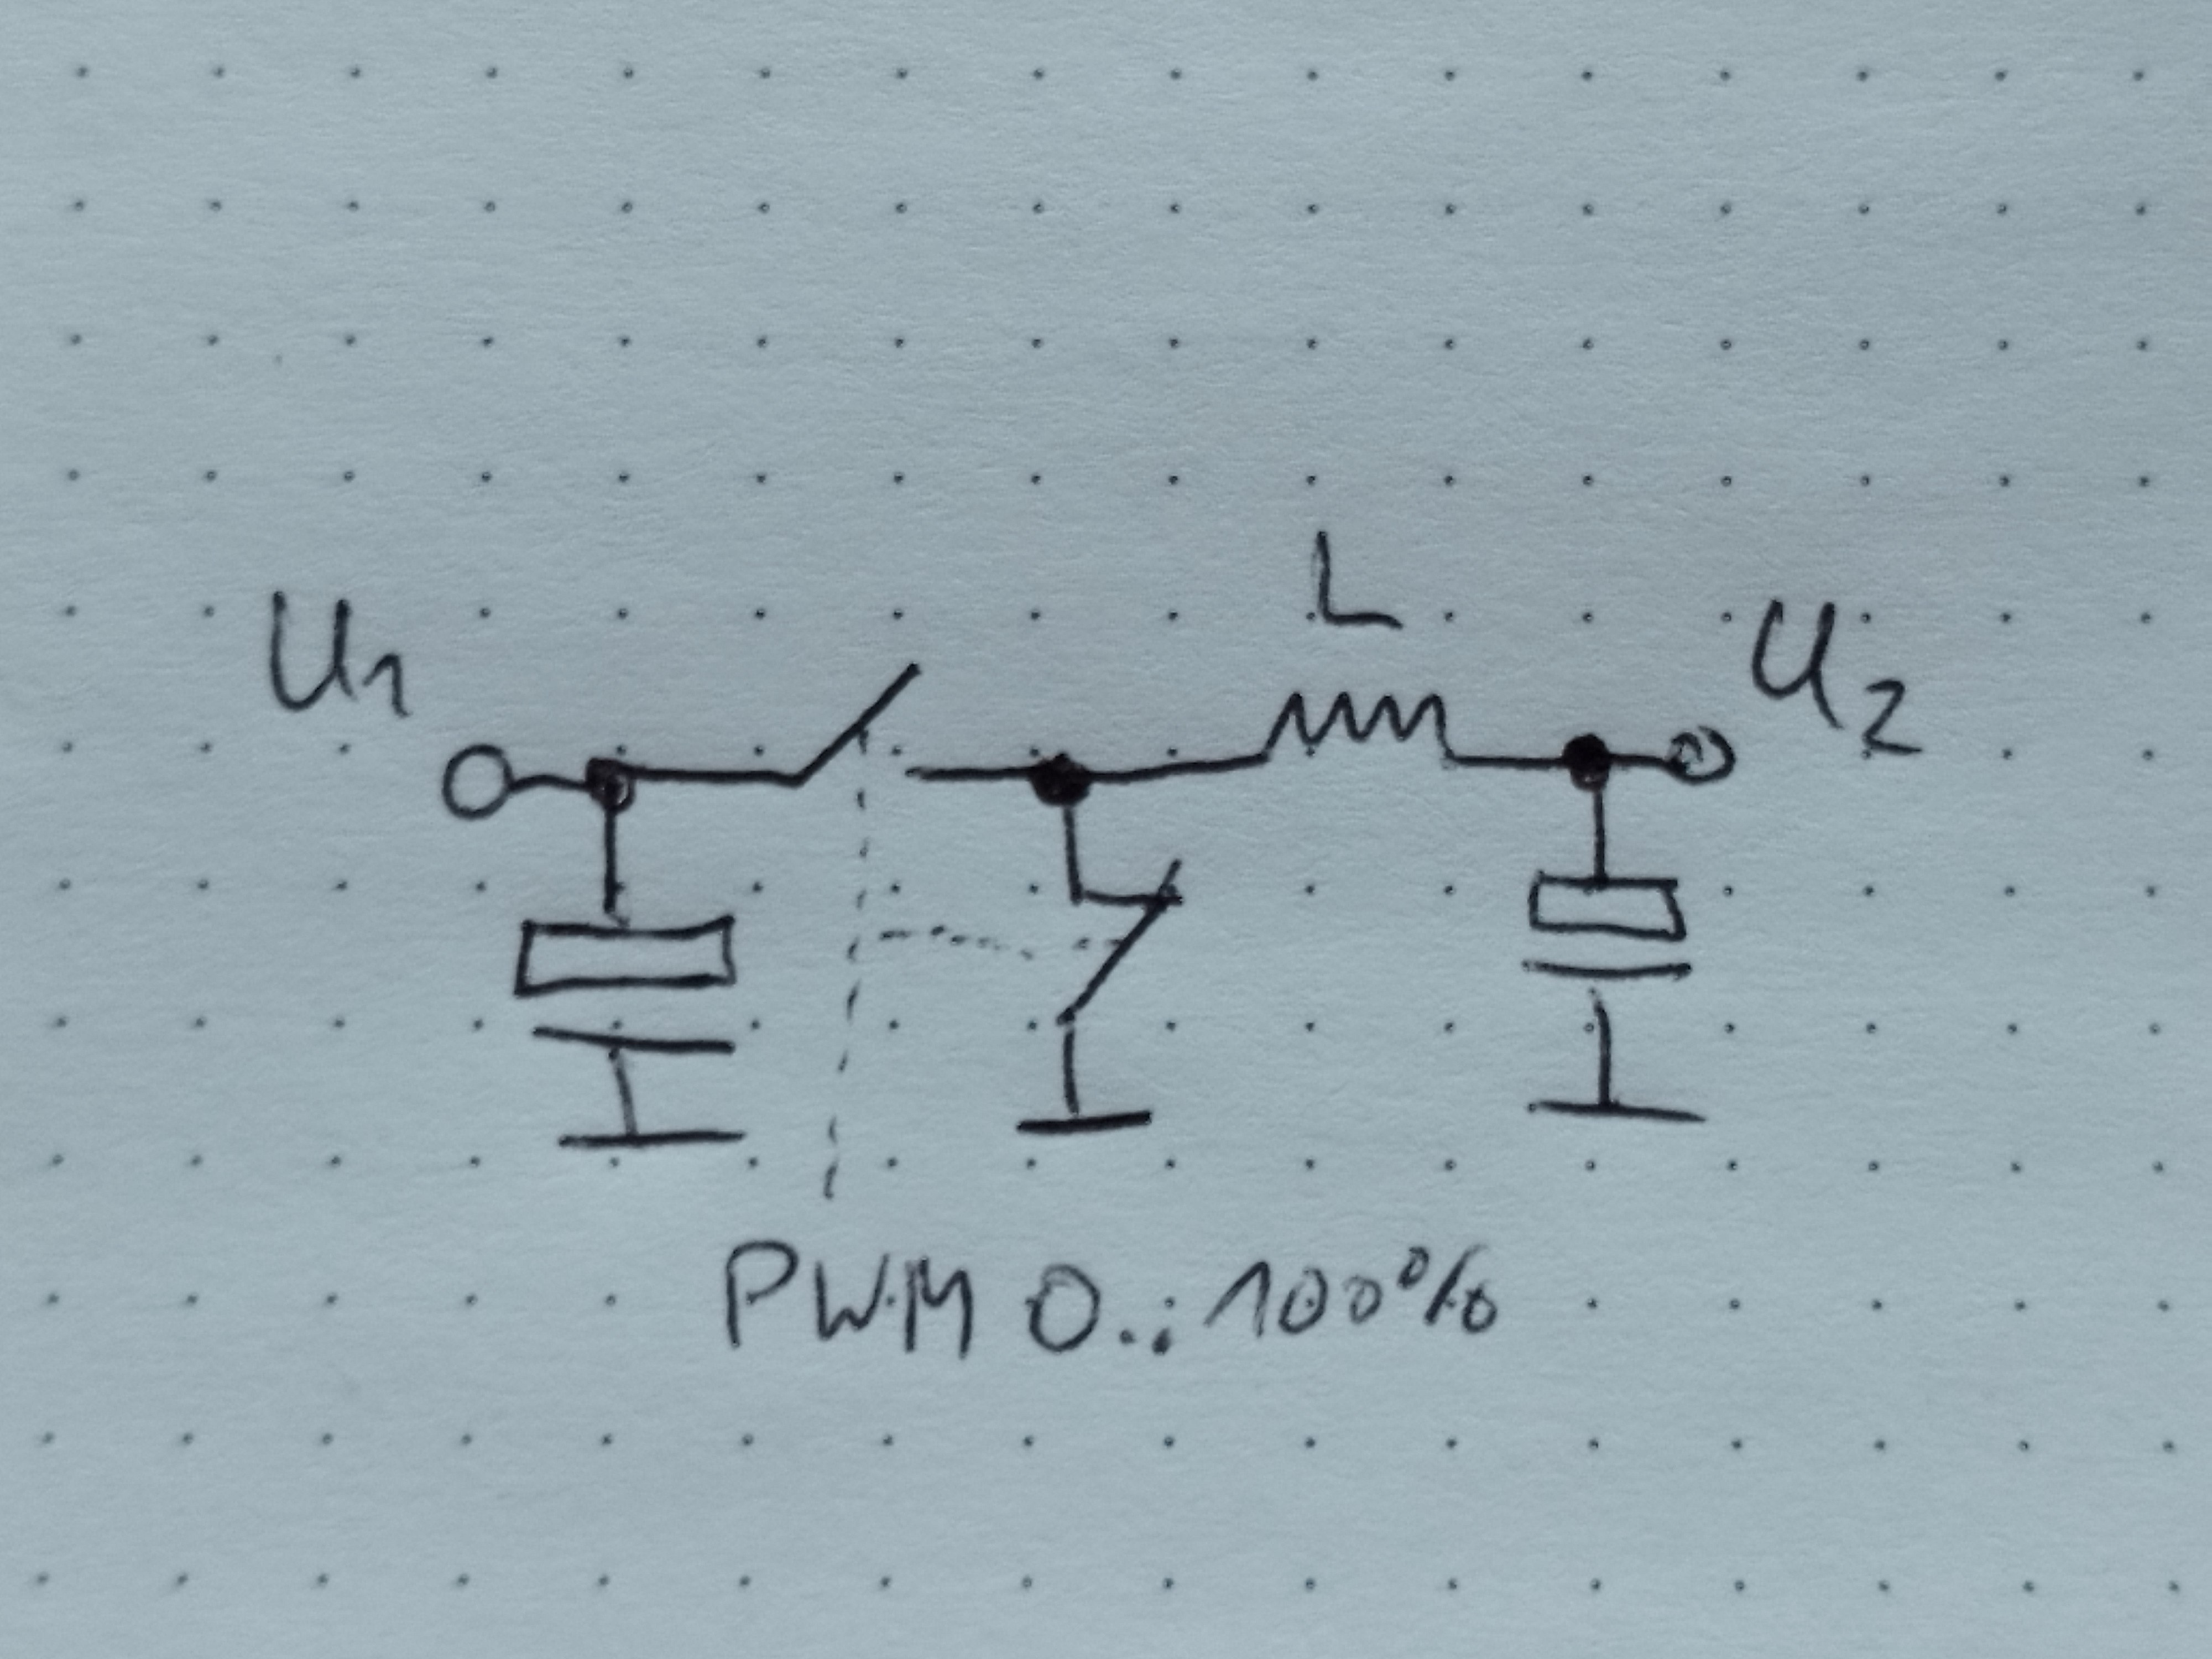 L
U1
U2
PWM 0..: 100%